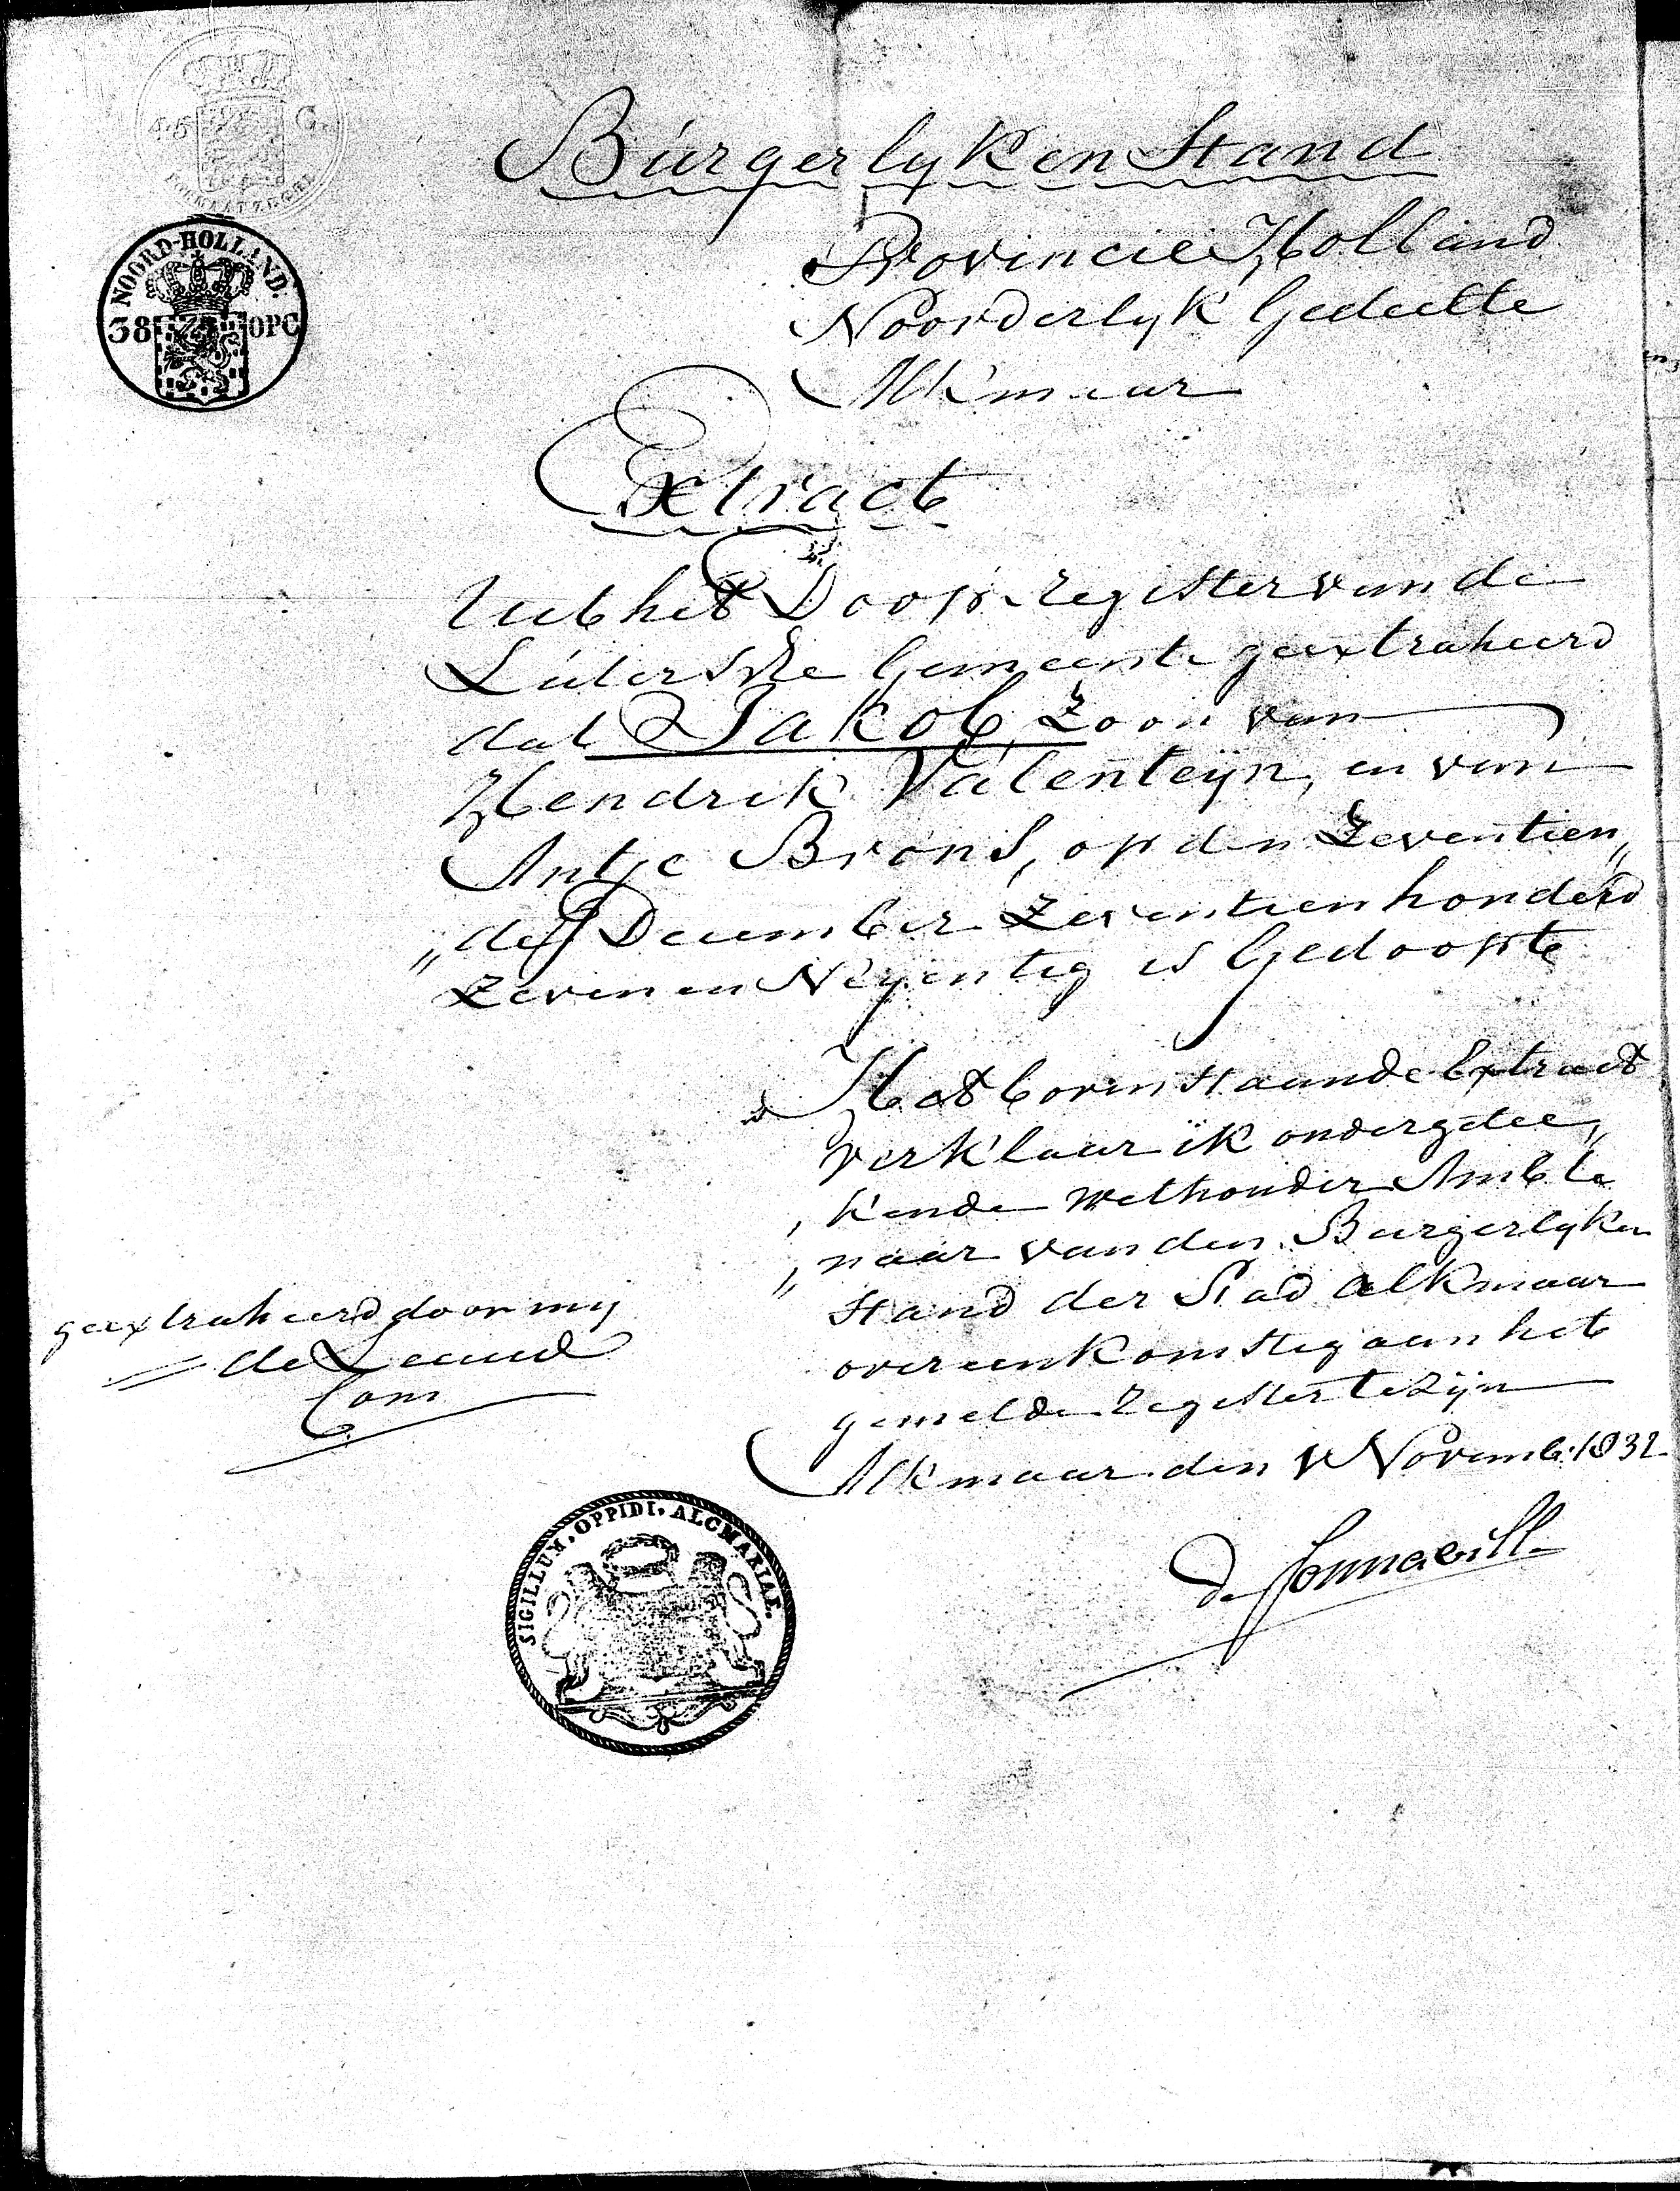 45 C.
FORMAATZEGEL
NOORD-HOLLAND.
38 OPC
Burgerlyken Stand
Provincie Holland
Noorderlyk Gedeelte
Alkmaar
Extract
Uit het Doop register van de
Lutersche Gemeente geextraheerd
dat Jakob, Zoon van
Hendrik Valenteijn, en van
Antje Brons, op den Zeventien„
„de December Zeventienhonderd
Zeven en Negentig is Gedoopt
Het bovenstaande Extract
verklaar ik ondergetee„
„kende Wethouder Ambte
„naar van den Burgerlyken
Stand der Stad Alkmaar
overeenkomstig aan het
gemelde register te zijn
Alkmaar den 1 Novemb. 1832
geextraheerd door my
de Leeuw
Com
SIGILLUM. OPPIDI. ALCMARIAE.